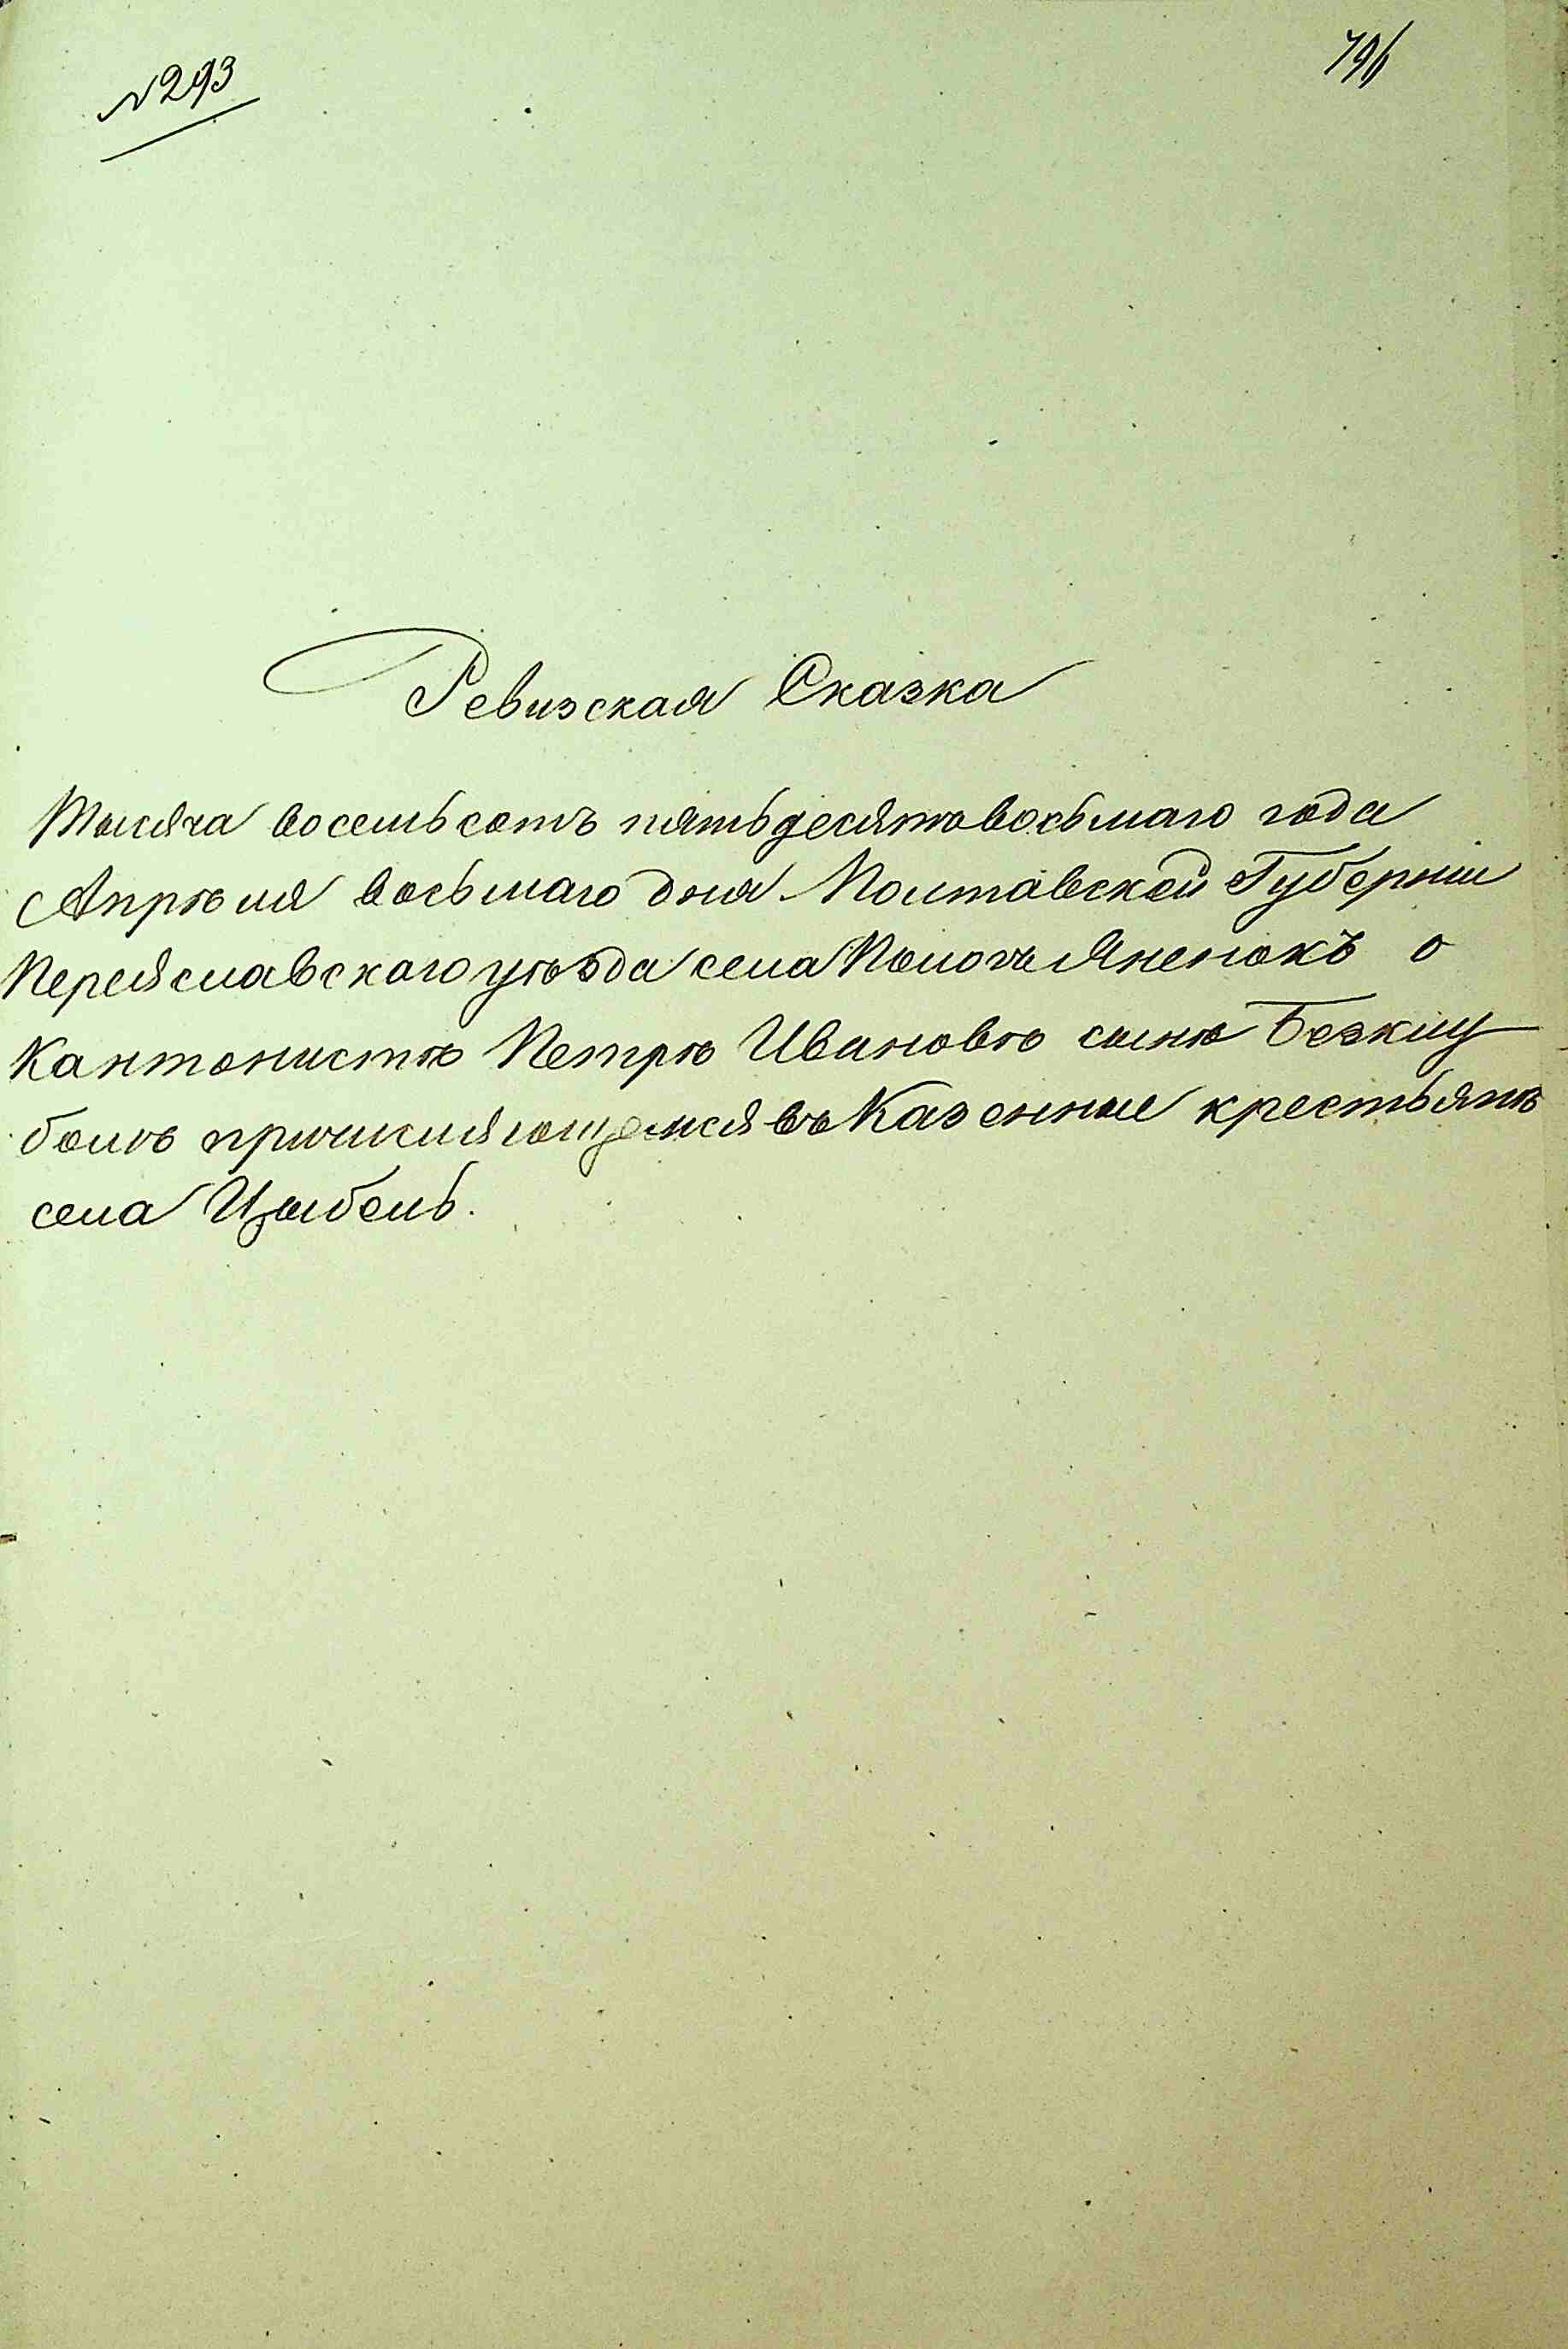 №293
796
Ревизская Сказка
Тысяча восемьсотъ пятьдесятъ восьмаго года
Апрѣля восьмаго дня Полтавской Губерніи
Переяславскаго уѣзда села Пологъ Яненокъ о
Кантонистѣ Петрѣ Ивановѣ сынѣ
причисляющемся въ Казенные крестьянѣ
села Цыбель.